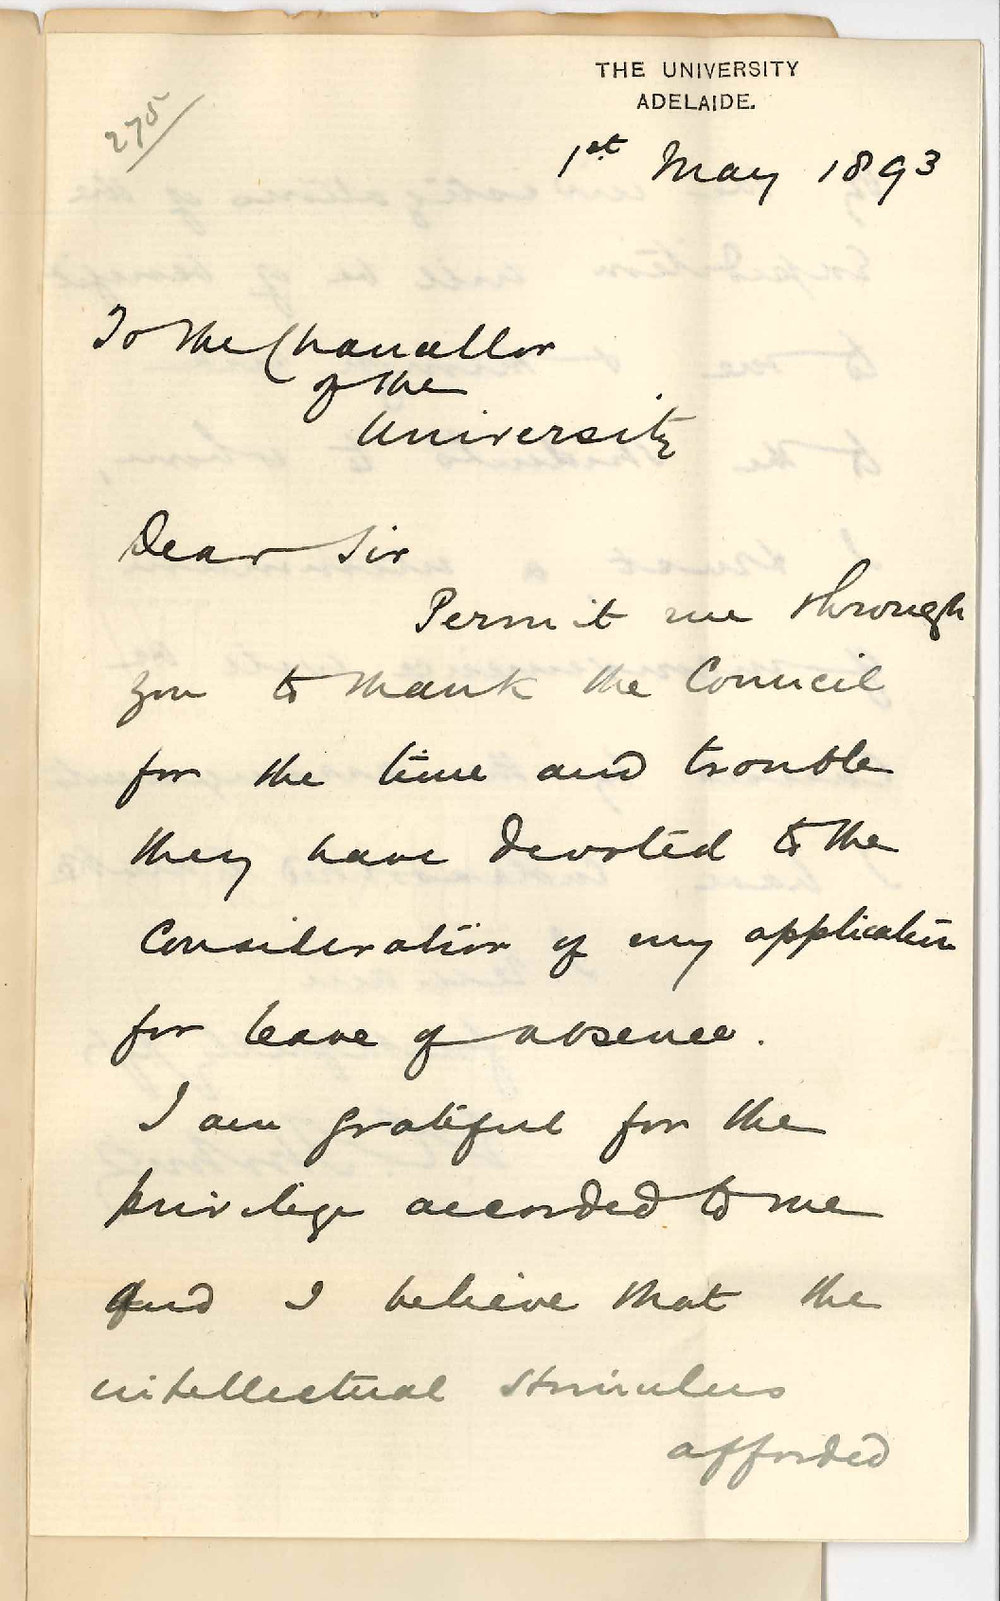 THE UNIVERSITY
ADELAIDE.
275
1st. May 1893
To the Chancellor
of the
University
Dear Sir
Permit me through
you to thank the Council
for the time and trouble
they have devoted to the
Consideration of my application
for leave of absence.
I am grateful for the
privilege accorded to me
And I believe that the
intellectual stimulus
afforded